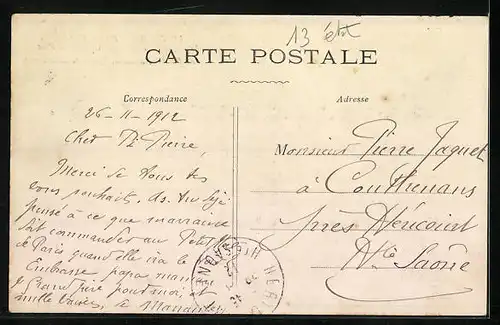 13 ét
CARTE POSTALE
Correspondance
Adresse
26-11-1912
Cher Pt Pierre,
Merci de tous tes
bons souhaits. As tu déjà
pensé à ce que marraine
fait commander au Petit
de Paris quand elle ira le
Embrasse papa maman
Grand père pour moi,
mille baisers, de
Monsieur Pierre Jaquet
à Couthenans
près Héricourt
Hte Saône